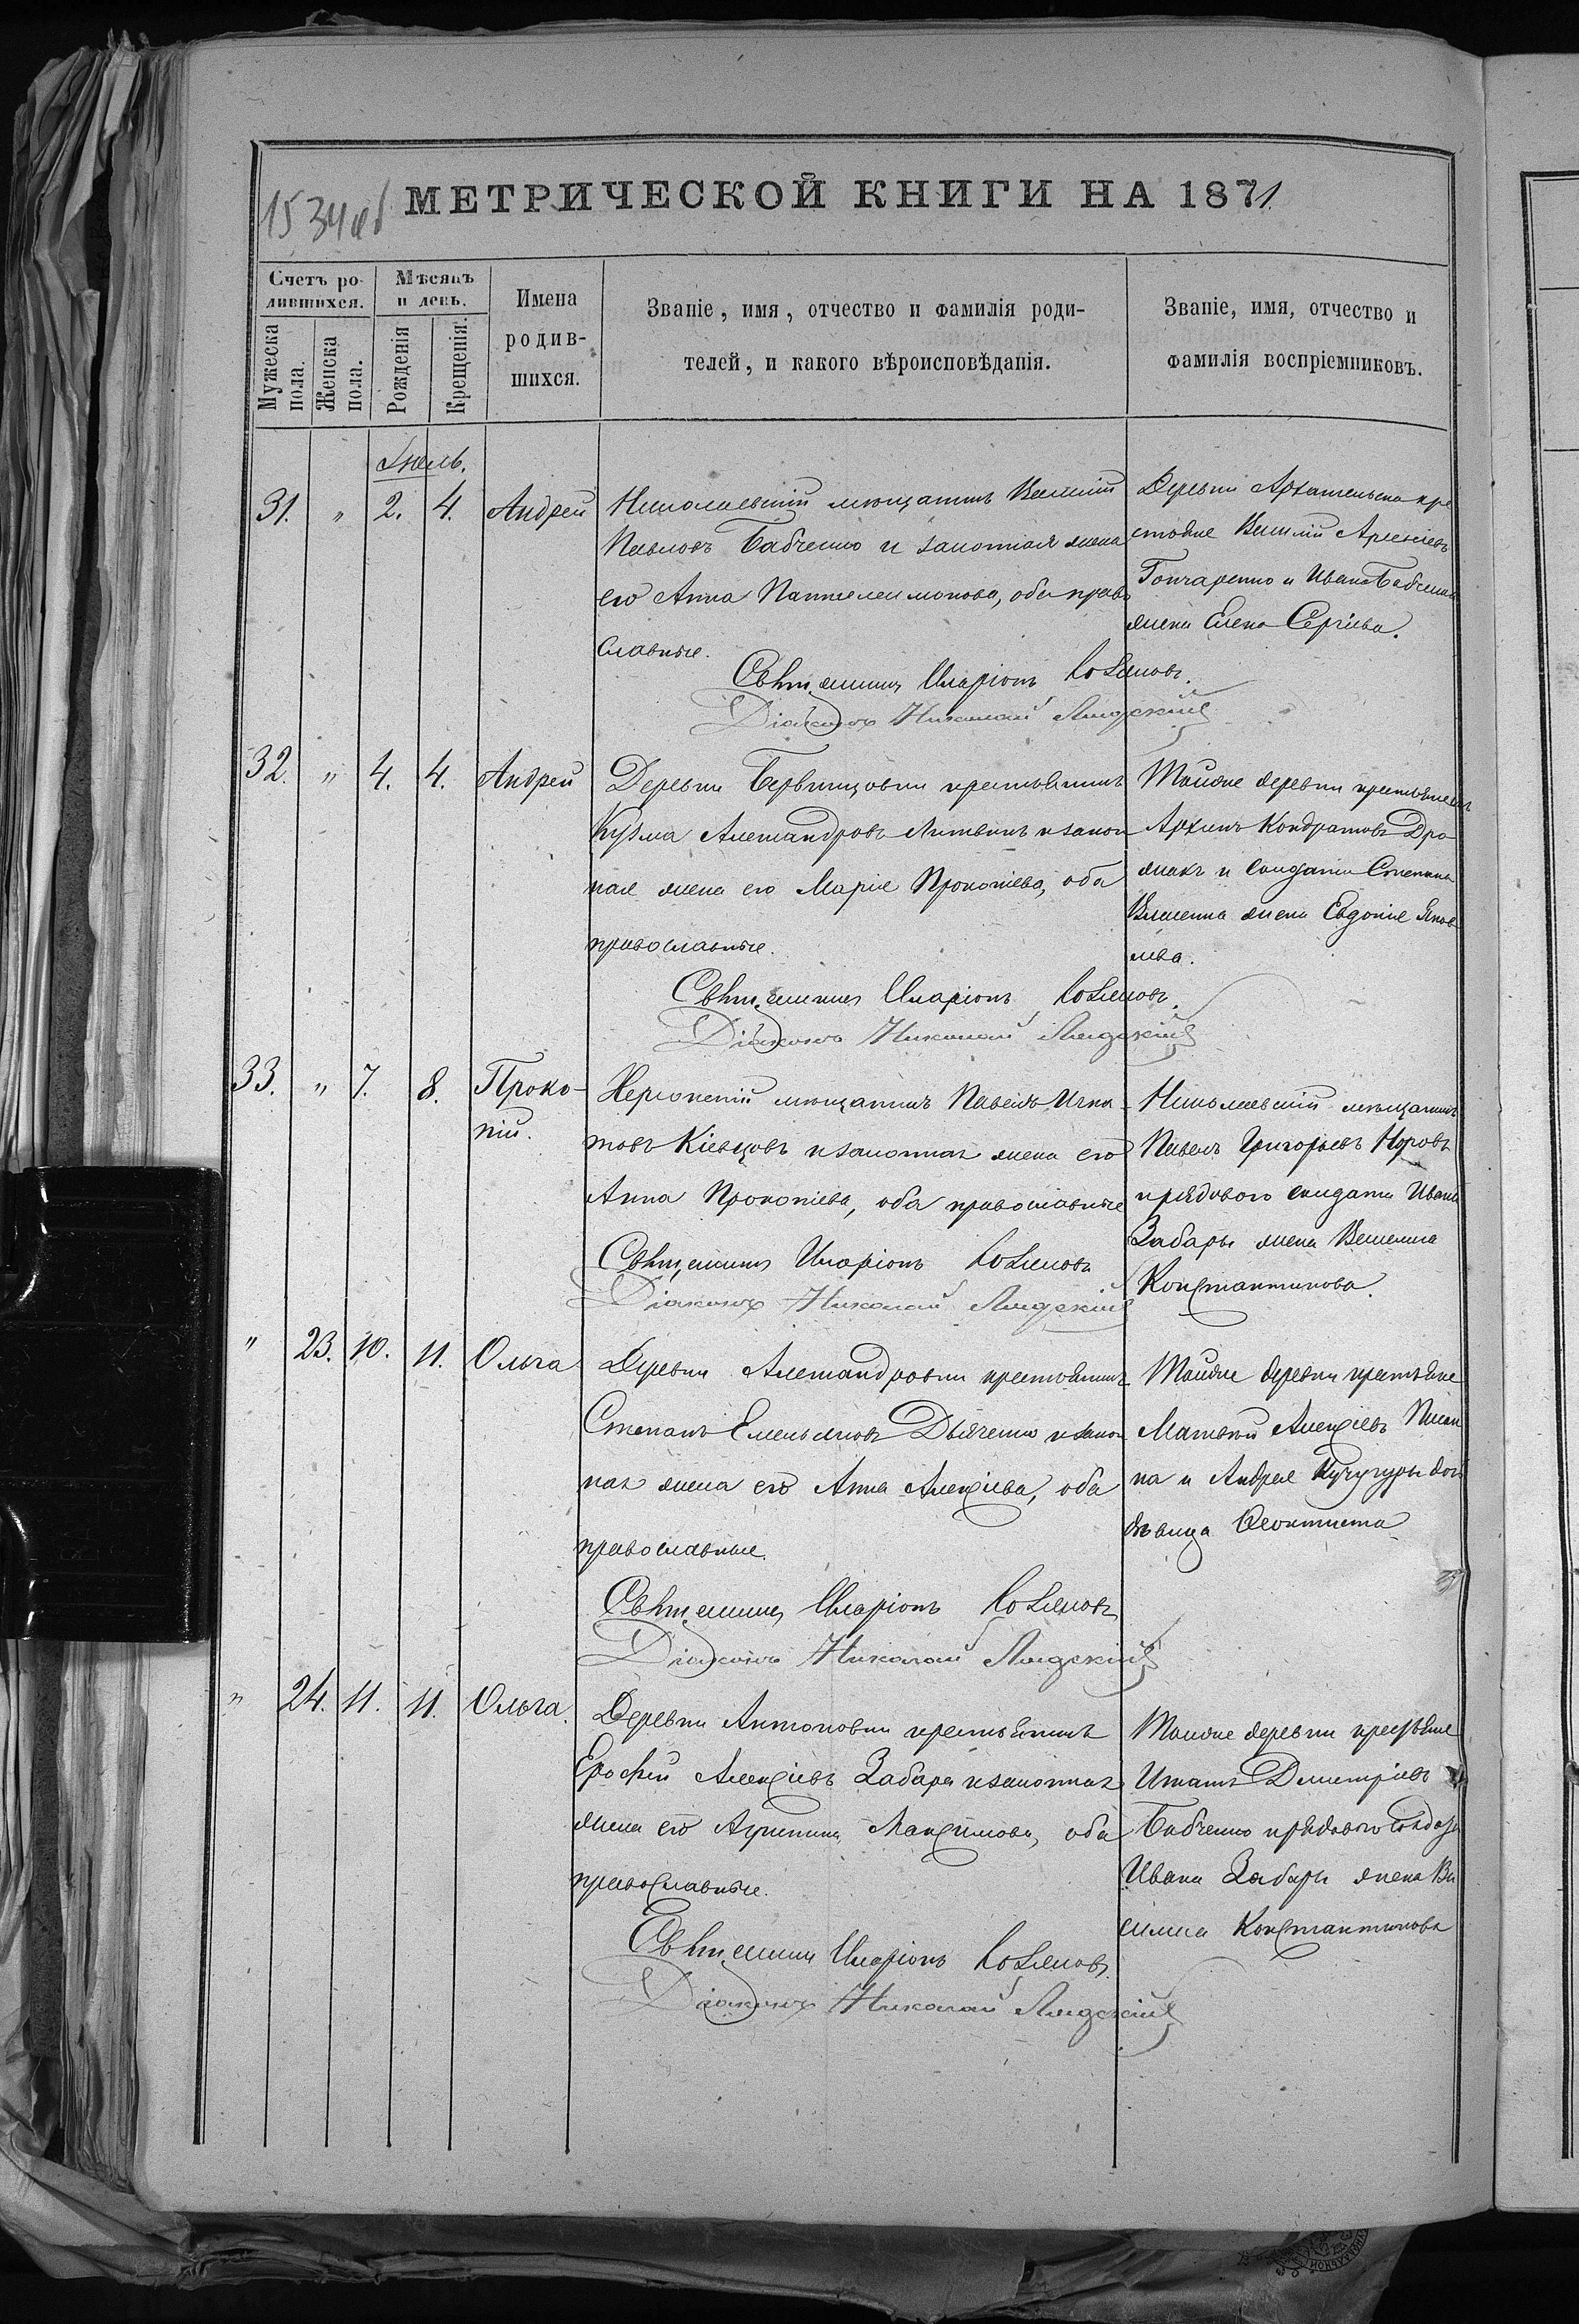 1534 об
МЕТРИЧЕСКОЙ КНИГИ НА 1871.
Счетъ ро-
дившихся.
Мѣсяцъ
и день.
Мужеска
пола.
Женска
пола.
Рожденія
Крещенія.
Имена
родив-
шихся.
Званіе, имя, отчество и фамилія роди-
телей, и какого вѣроисповѣданія.
Званіе, имя, отчество и
фамилія воспріемниковъ.
31. " 2. 4. Андрей
Николаевскій мѣщанинъ Василій
Павловъ Бабченко и законная жена
его Анна Пантелеимонова, оба право
славные.
Священникъ Иларіонъ
Діаконъ Николай Лядскій
Деревни Архангельска кре
стьяне Василій Арсеніевъ
Гончаренко и Ивана Бабченка
жена Елена Сергіева.
32. " 4. 4. Андрей
Деревни крестьянинъ
Кузма Александровъ Литвинъ и закон
ная жена его Марія Прокопіева, оба
православные.
Священникъ Иларіонъ
Діаконъ Николай Лядскій
Тойже деревни крестьянинъ
Архипъ Кондратовъ
и солдата Степана
жена Евдокія Яков
лева.
33. " 7. 8. Проко-
пій.
Херсонскій мѣщанинъ Павелъ Игна
товъ Кіевцовъ и законная жена его
Анна Прокопіева, оба православные
Священникъ Иларіонъ
Діаконъ Николай Лядскій
Николаевскій мѣщанинъ
Павелъ Григорьевъ Норовъ
и рядового солдата Ивана
Забары жена Василиса
Константинова.
" 23. 10. 11. Ольга
Деревни Александровки крестьянинъ
Степанъ Емельяновъ Дьяченко и закон
ная жена его Анна Алексіева, оба
православные.
Священникъ Иларіонъ
Діаконъ Николай Лядскій
Тойже деревни крестьяне
Матвѣй Алексіевъ
на и Андрея Кучугуры дочь
дѣвица Ѳеоктиста
" 24. 11. 11. Ольга.
Деревни Антоновки крестьянинъ
Ерофей Алексіевъ Забара и законная
жена его Агрипина Максимова, оба
православные.
Священникъ Иларіонъ
Діаконъ Николай Лядскій
Тойже деревни крестьяне
Игнатъ Димитріевъ
Бабченко и рядового солдата
Ивана Забары жена Ва
силиса Константинова